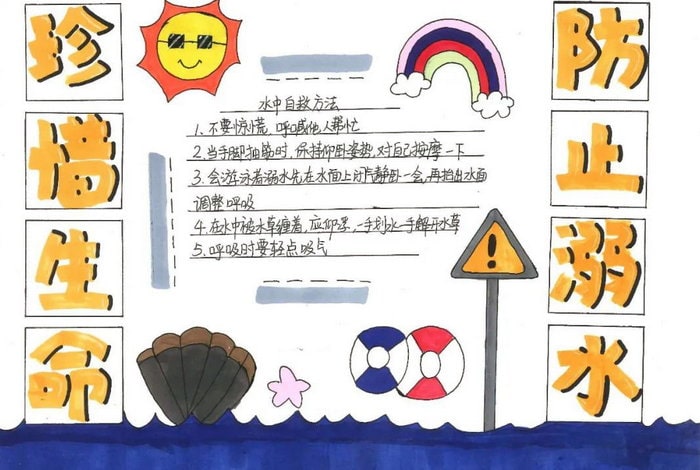 珍惜生命
防止溺水
水中自救方法
1.不要惊慌,呼喊他人帮忙
2.当手脚抽筋时,保持仰卧姿势,对自己按摩一下
3.会游泳者溺水先在水面上闭气静卧一会,再抬出水面
调整呼吸
4.在水中被水草缠着,应仰浮,一手划水一手解开水草
5.呼吸时要轻点吸气
!